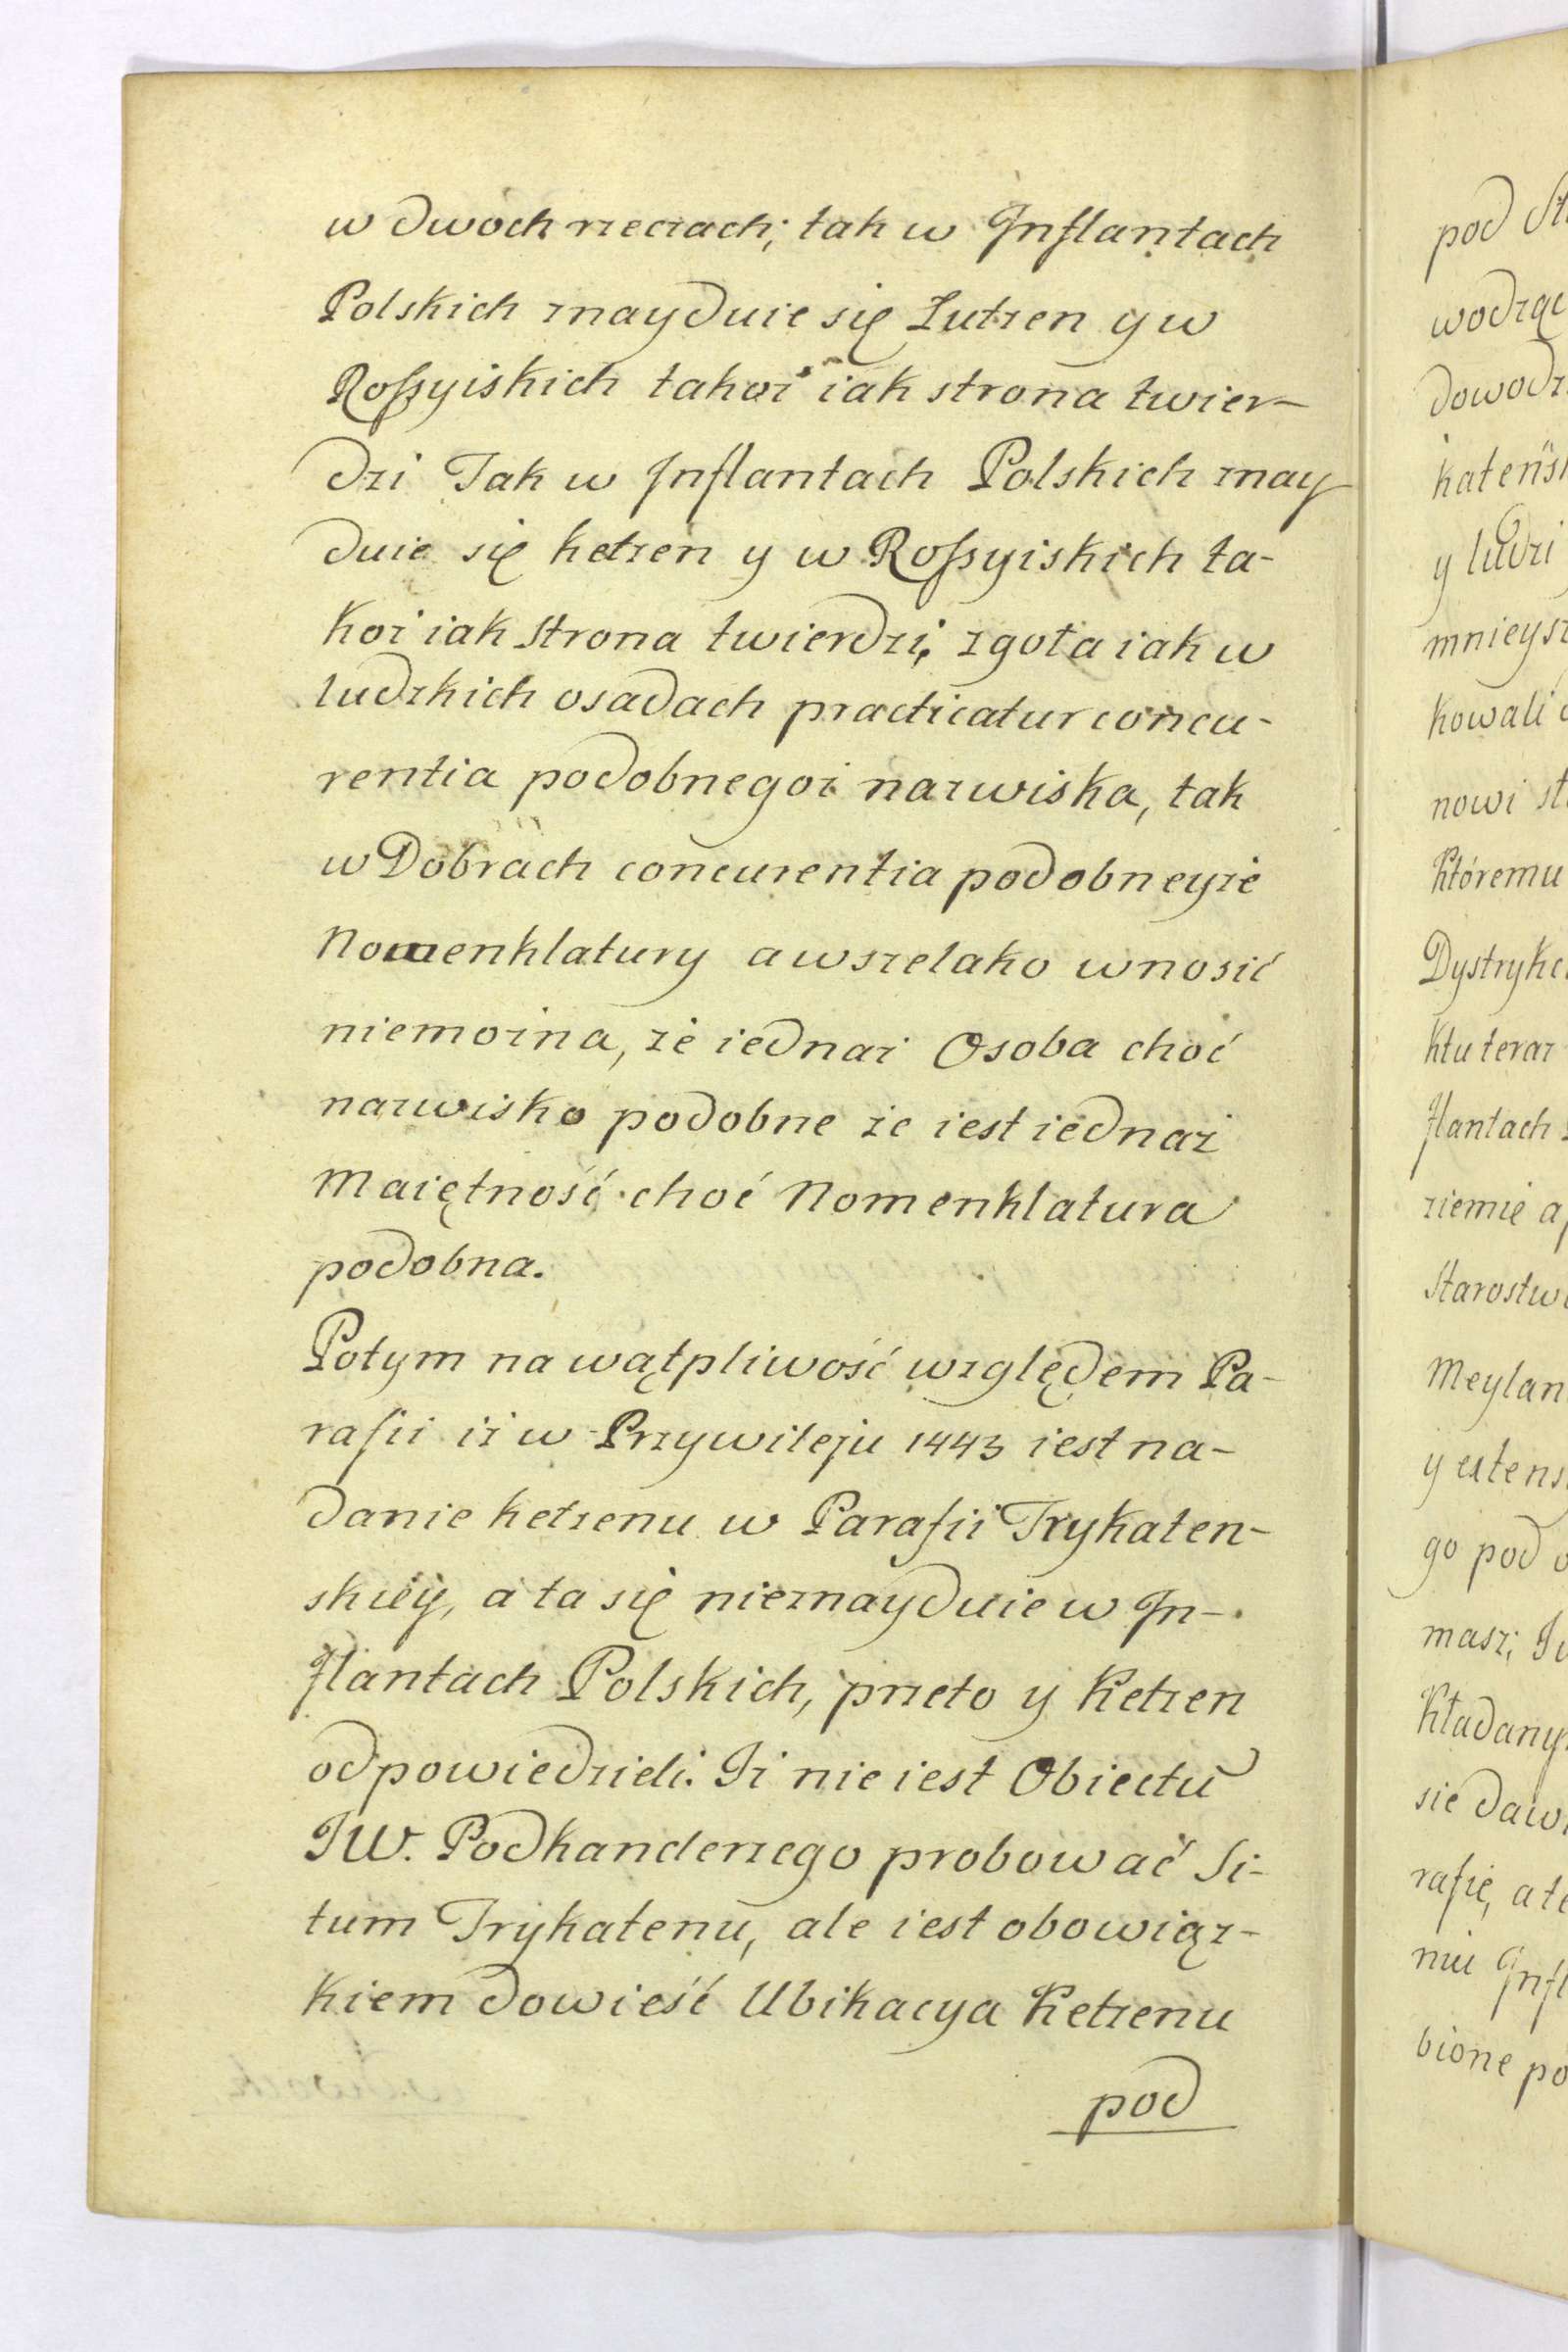 w dwoch rzeczach; tak w Inflantach
Polskich znayduie się Lutzen y w
Rossyiskich takoż iak strona twier-
dzi Tak w Inflantach Polskich znay-
duie się Ketzen y w Rossyiskich ta-
koż iak strona twierdzi, zgoła iak w
ludzkich osadach practicatur concu-
rentia podobnegoż nazwiska, tak
w Dobrach concurentia podobneyże
Nomenklatury a wszelako wnosić
niemożna, że iednaż Osoba choć
nazwisko podobne że iest iednaż
Maiętność choć Nomenklatura
podobna.
Potym na wątpliwość względem Pa-
rafii iż w Przywileju 1443 iest na-
danie Ketzenu w Parafii Trykaten-
skiey, a ta się nieznayduie w In-
flantach Polskich, przeto y Ketzen
odpowiedzieli. Iż nie iest Obiectu
JW. Podkanclerzego probować Si-
tum Trykatenu, ale iest obowiąz-
kiem dowieść Ubikacya Ketzenu
pod
pod Sta
wodzą
dowodz
kateńsk
y ludzi
mnieysz
kowali
nowi st
któremu
Dystrykc
ktu teraz
flantach
ziemie a
Starostw
Meylan
y extens
go pod
masz;
kładany
sie daw
rafie, a t
niu Infl
bione po